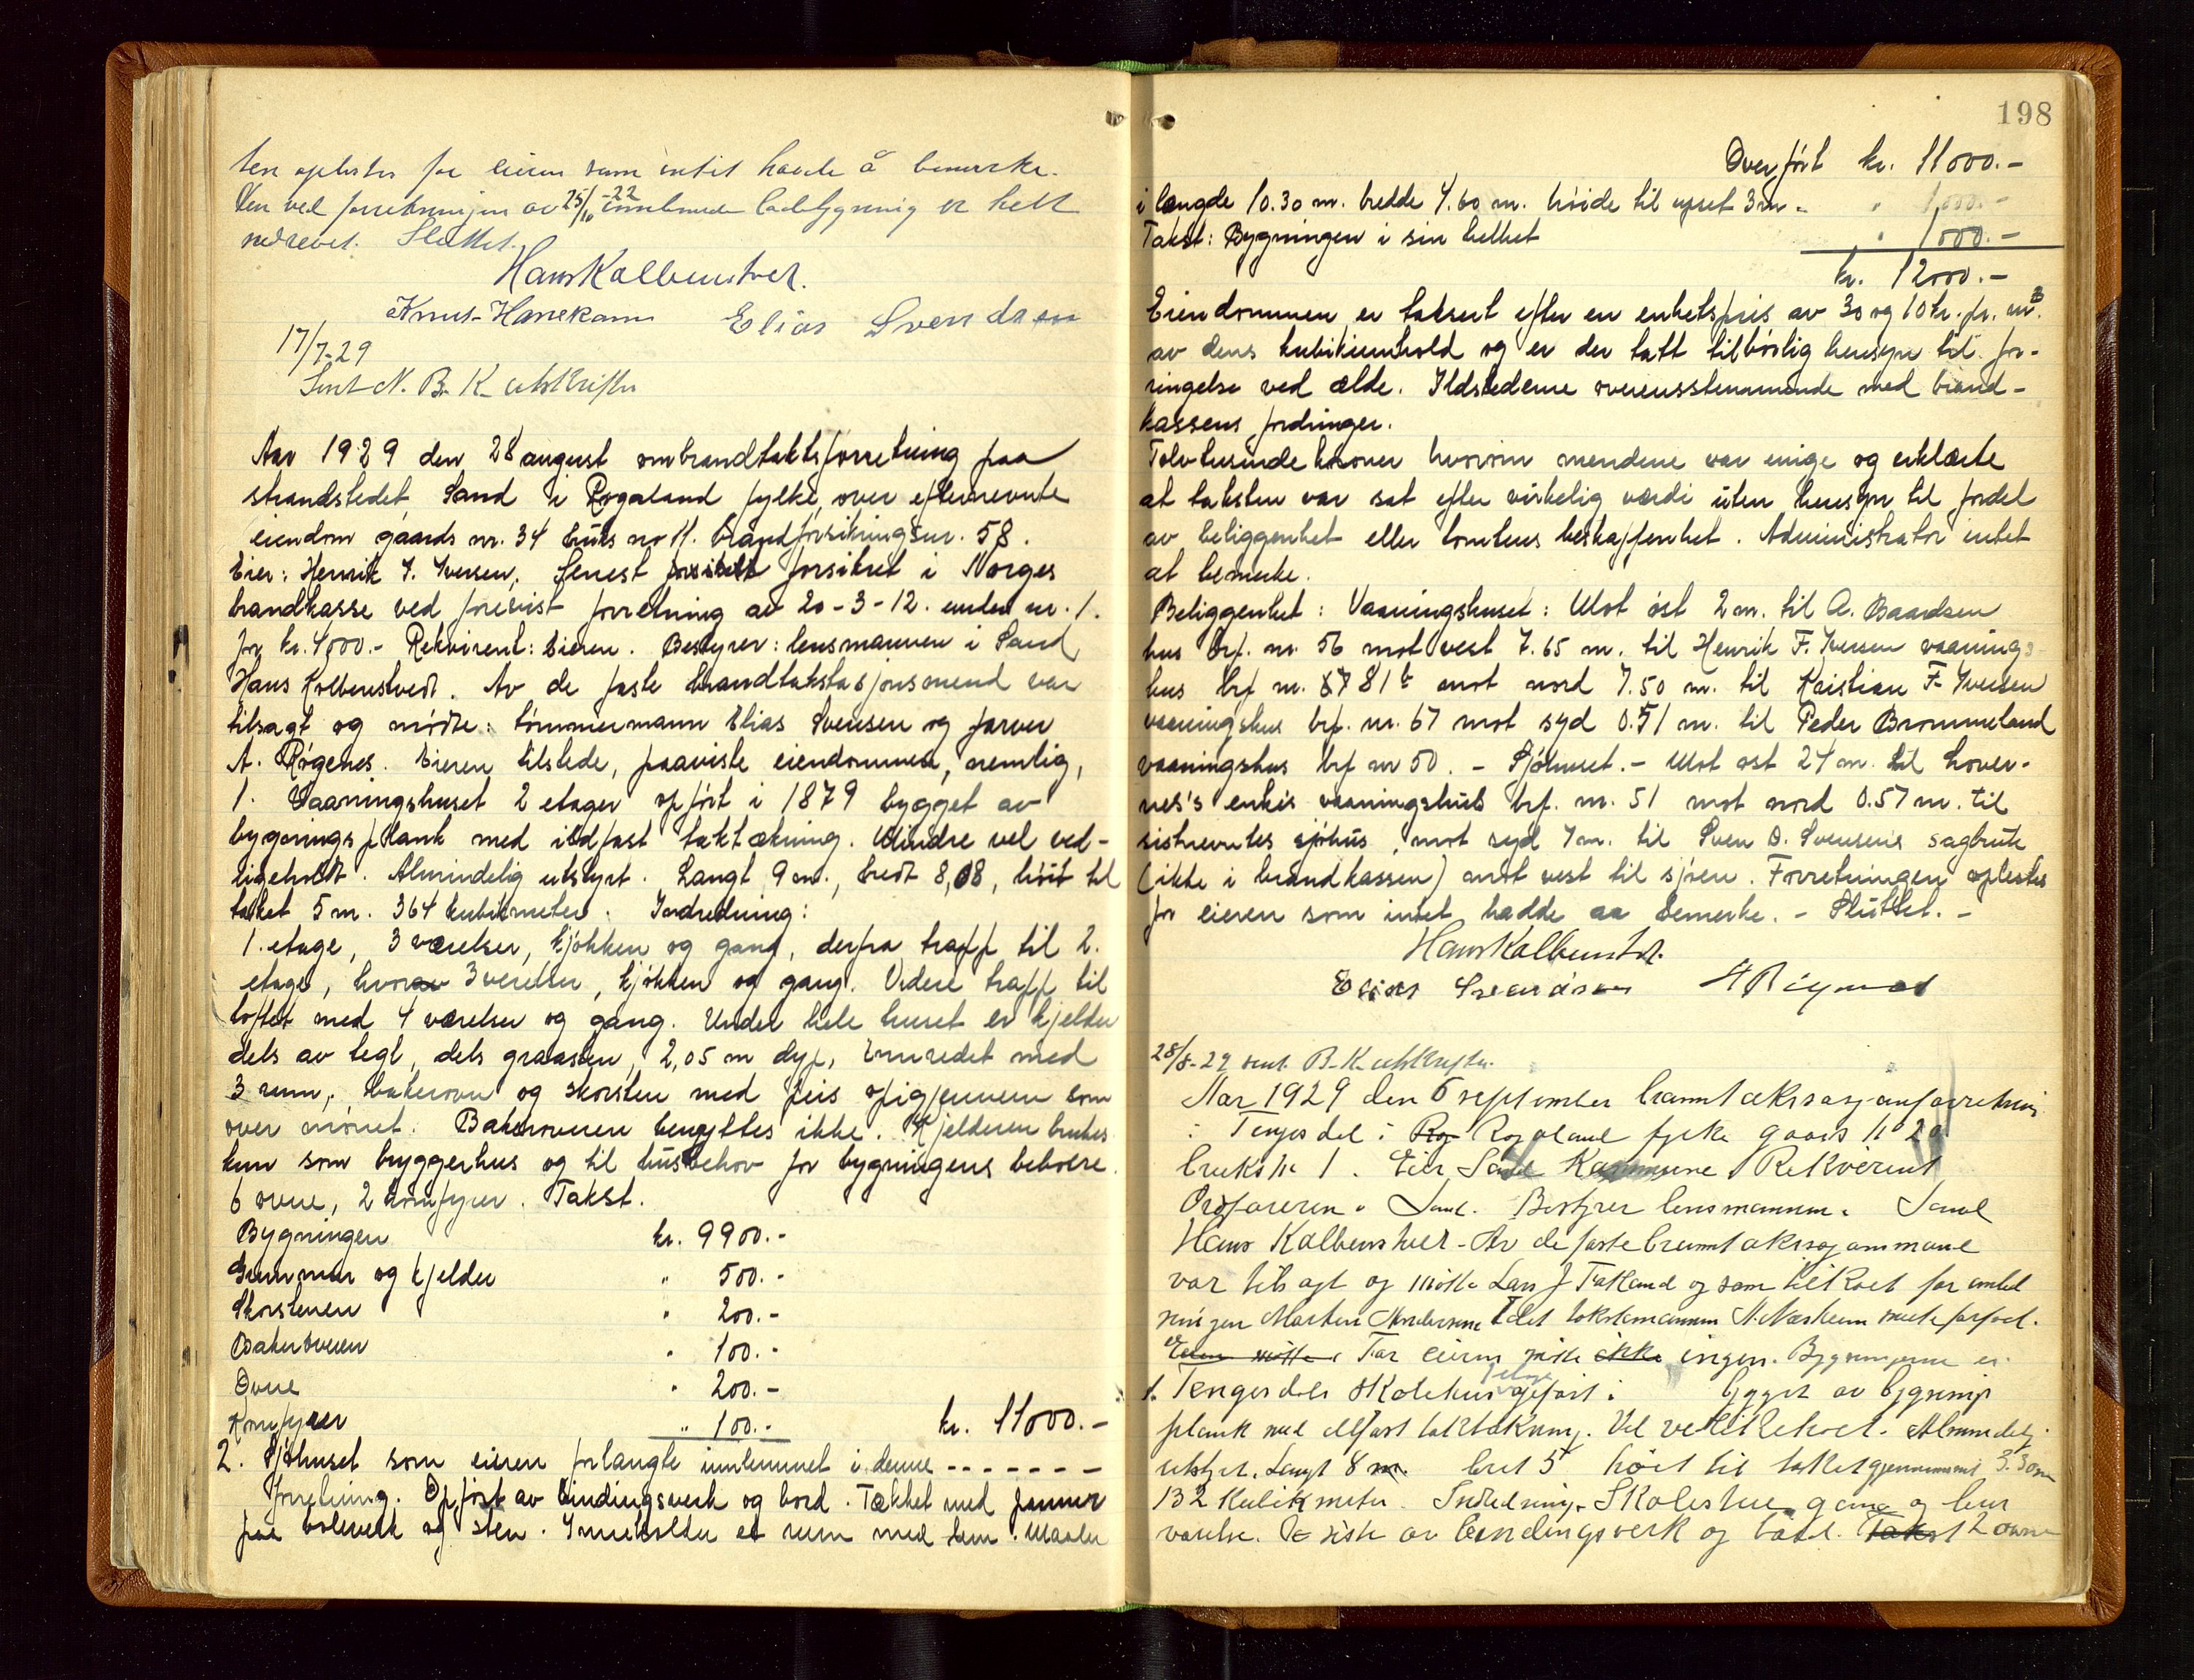 ten oplestes for eieren som intet havde å bemerke.
Den ved forretningen av 25/10-22 ladebygning er helt
nedrevet. Sluttet.
Hans Kolbenstvedt.
Knut Hanekam Elias Svendsen
17/7-29
Sent N. B. K. utskrifter
Aar 1929 den 28 august ombrandtakstforretning paa
strandstedet Sand i Rogaland fylke over efternevnte
eiendom gaards nr. 34 bruks no 11. brandforsikringsnr. 58.
Eier: Henrik F. Iversen. Senest forsikret i Norges
brandkasse ved forevist forretning av 20-3-12. under nr. 1.
for kr. 4000.- Rekvirent: Eieren. Bestyrer: lensmannen i Sand
Hans Kolbenstvedt. Av de faste brandtakstasjonsmend var
tilsagt og møtte: tømmermann Elias Svensen og farver
A. Røgenes. Eieren tilstede, paaviste eiendommen, nemlig,
1. Vaaningshuset 2 etager opført i 1879 bygget av
bygningsplank med ildfast taktækning. Mindre vel ved-
ligeholdt. Almindelig utstyrt. Langt 9 m., bredt 8,08, høit til
taket 5 m. 364 kubikmeter. Indredning:
1. etage, 3 værelser, kjøkken og gang, derfra trapp til 2.
etage, hvorav 3 verelser, kjøkken og gang. Videre trapp til
loftet med 4 værelser og gang. Under hele huset er kjelder
dels av tegl, dels graasten, 2,05 m dyp, innredet med
3 rum, bakerovn og skorsten med peis opigjennem som
over mønet. Bakerovnen benyttes ikke. Kjelderen brukes
kun som bryggerhus og til husbehov for bygningens beboere.
6 ovne, 2 komfyrer. Takst.
Bygningen kr. 9900.-
Grunnmur og kjelder " 500.-
Skorstenen " 200.-
Bakerovnen " 100.-
Ovne " 200.-
Komfyrer " 100.- kr. 11000.-
2. Sjøhuset som eieren forlangte inntemmet i denne - - - - - - -
forretning. Opført av bindingsverk og bord. Tækket med panner
paa bolverk og sten. Inneholder et rum med lem. Maaler
198
Overført kr. 11000.-
i længde 10.30 m. bredde 4.60 m. høide til upset 3 m - " 1,000.-
Takst: Bygningen i sin helhet " 1000.-
kr. 12000.-
Eiendommen er taksert efter en enhetspris av 30 og 10 kr. pr. m³.
av dens kubikinnhold og er der tatt tilbørlig hensyn til for-
ringelse ved ælde. Ildstederne overensstemmende med brand-
kassens fordringer.
Tolvtusinde kroner hvorom mendene var enige og erklærte
at taksten var sat efter virkelig værdi uten hensyn til fordel
av beliggenhet eller tomtens beskaffenhet. Administrator intet
at bemerke.
Beliggenhet: Vaaningshuset: Mot øst 2 m. til A. Baardsen
hus brf. nr. 56 mot vest 7.65 m. til Henrik F. Iversen vaanings-
hus brf nr. 81 b mot nord 7.50 m. til Kristian F. Iversen
vaaningshus brf. nr. 67 mot syd 0.51 m. til Peder Brommeland
vaaningshus brf nr 50. - Sjøhuset. - Mot øst 24 m. til Lover-
nes's enkes vaaningshus brf. nr. 51 mot nord 0.57 m. til
sistnevntes sjøhus, mot syd 7 m. til Sven O. Svensens sagbruk
(ikke i brandkassen) mot vest til sjøen. Forretningen oplestes
for eieren som intet hadde aa bemerke. - Sluttet. -
Hans Kolbenstvedt.
Elias Svendsen A Røgenes
28/8-29 sent B. K. utskrifter.
Aar 1929 den 6 september branntakstasjonsforretning
i Tengesdal i Rog Rogaland fylke gaards nr 20
bruks nr 1. Eier Sand Kommune Rekvirent
Ordføreren i Sand. Bestyrer lensmannen i Sand
Hans Kolbenstvedt - Av de faste branntakstasjonsmenn
var tilsagt og møtte Lars J Fatland og som tilkalt for anled
ningen Morten Andersen idet takstmannen N. Næsheim hadde forfall.
Eieren møtte For eieren møtte ikke ingen. Bygningene er
1. Tengesdals skolehus 1 etage opført i bygget av bygnings
plank med ildfast taktækning. Vel vedlikeholt. Almindelig
utstyrt. Langt 8 m. bret 5 høit til taket gjennemsnit 3.30 m
132 kubikmeter. Indredning. Skolestue gang og
værelse. De siste av bindingsverk og bord. Takst 2 ovne